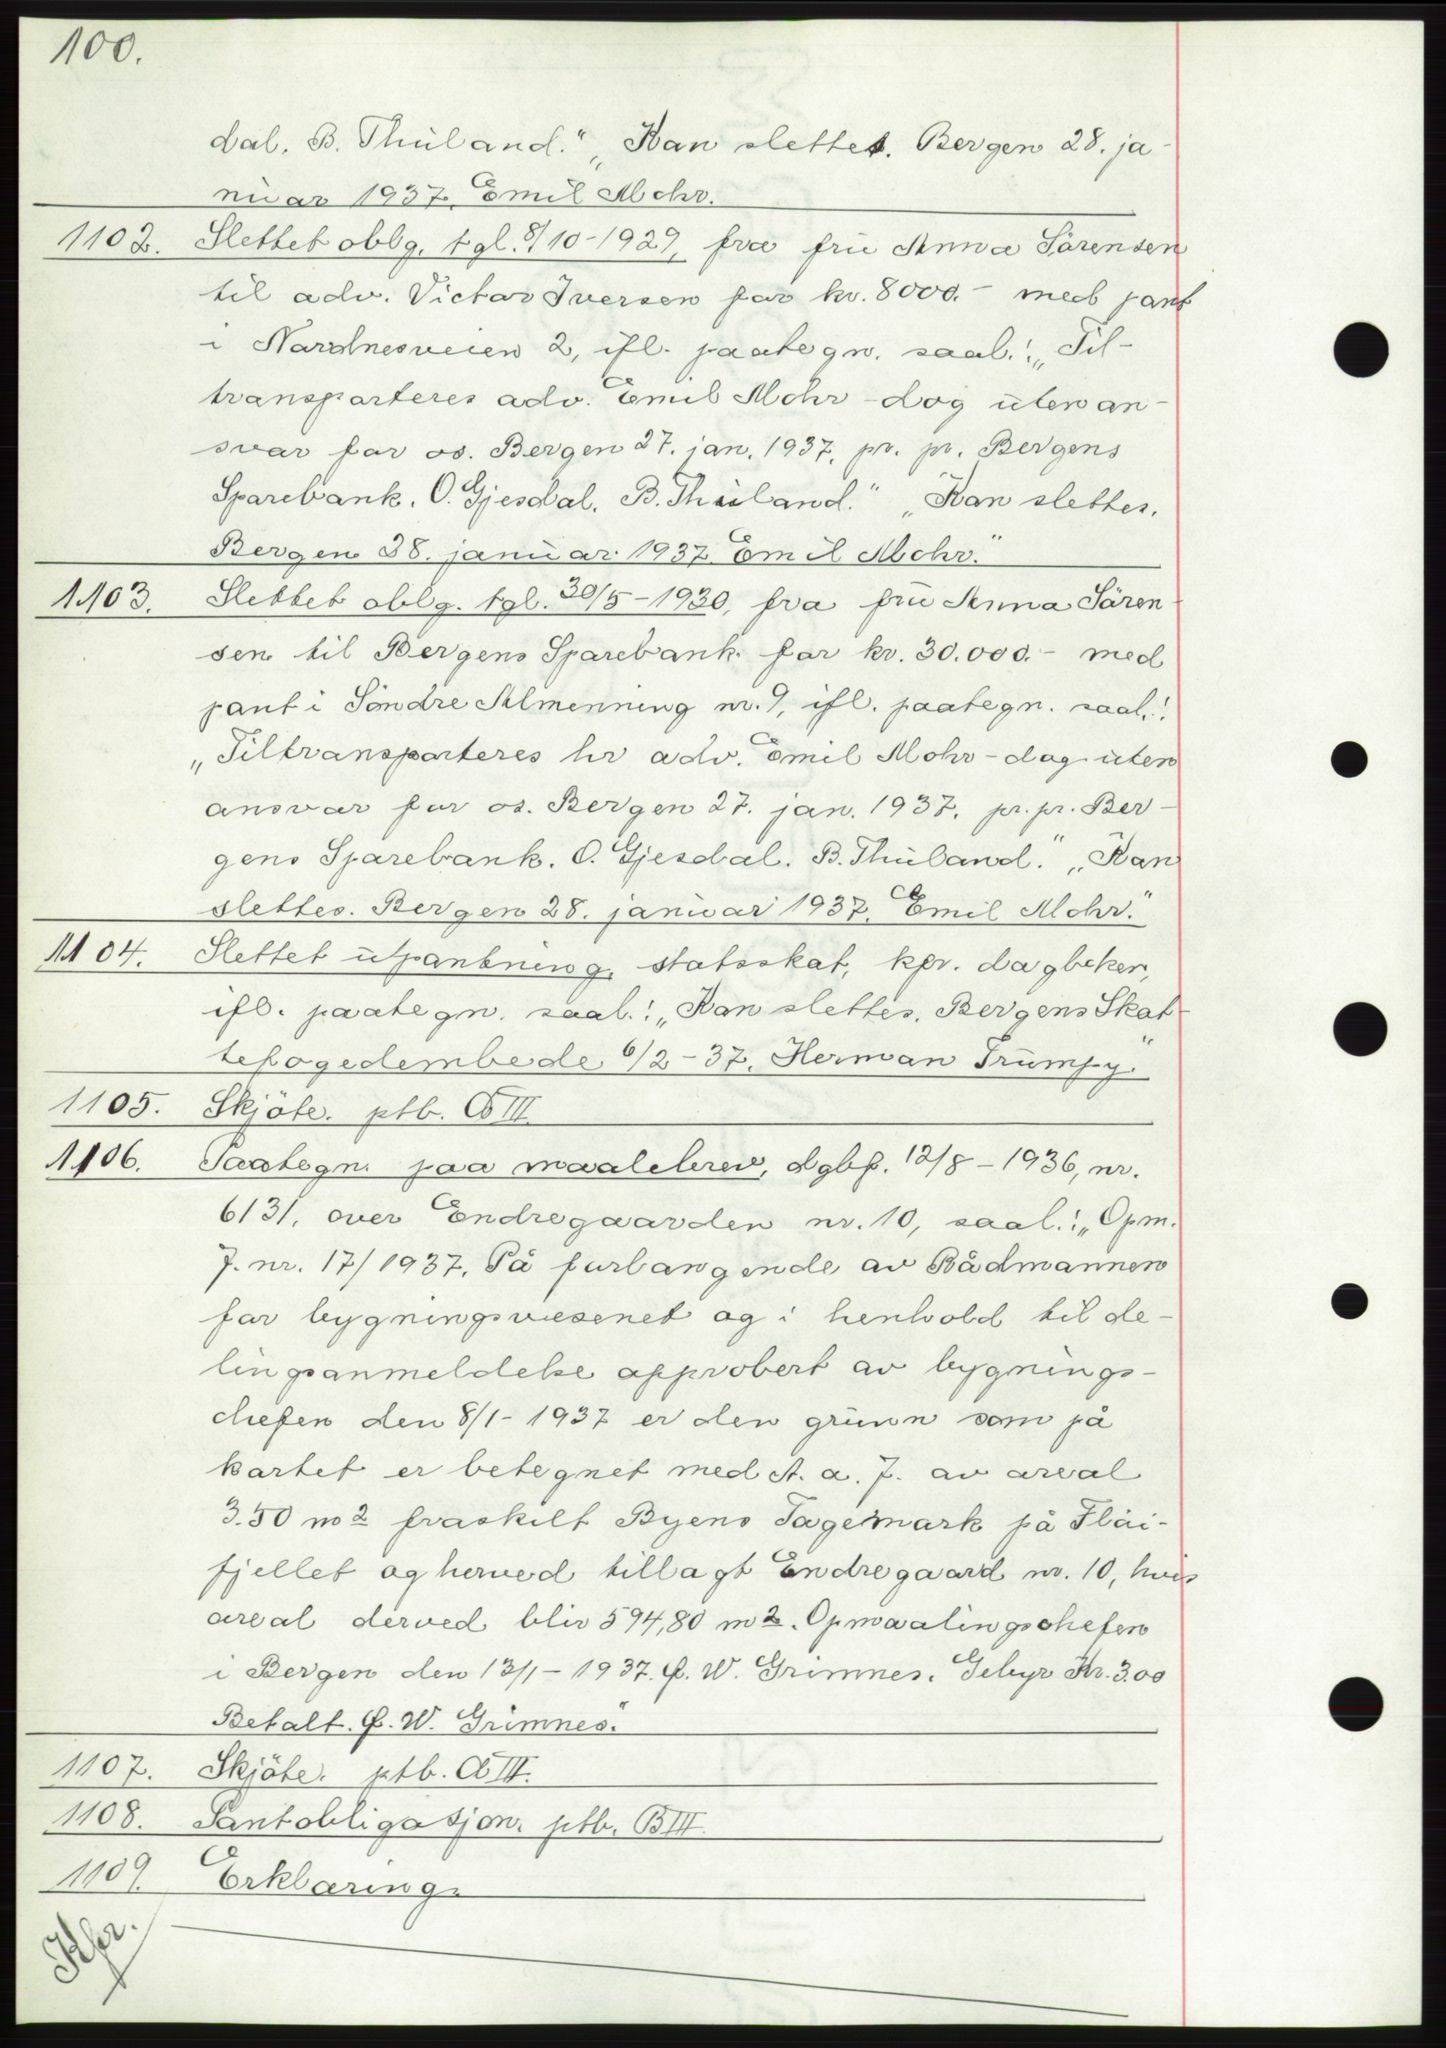 100.
dal. B. Thüland." „Kan slettes. Bergen 28. ja-
nüar 1937. Emil Mohr.
1102. Slettet oblg. tgl. 8/10-1929, fra frü Anna Sörensen
til adv. Victor Iversen for kr. 8000.- med pant
i Nordnesveien 2, ifl. paategn. saal.: „Til-
transporteres adv. Emil Mohr - dog üten an-
svar for os. Bergen 27. jan. 1937. pr. pr. Bergens
Sparebank. O. Gjesdal. B. Thüland." „Kan slettes.
Bergen 28. janüar 1937. Emil Mohr."
1103. Slettet oblg. tgl. 30/5-1930, fra frü Anna Sören-
sen til Bergens Sparebank for kr. 30.000.- med
pant i Söndre Almenning nr. 9, ifl. paategn. saal.:
„Tiltransporteres hr adv. Emil Mohr - dog üten
ansvar for os. Bergen 27. jan. 1937. pr. pr. Ber-
gens Sparebank. O. Gjesdal. B. Thüland." „Kan
slettes. Bergen 28. januar 1937. Emil Mohr."
1104. Slettet ütpantning. statsskat, kfr. dagboken,
ifl. paategn. saal.: „Kan slettes. Bergens Skat-
tefogedembede 6/2-37. Herman Trümpy."
1105. Skjöte. ptb. C III.
1106. Paategn. paa maalebrev, dgbf. 12/8-1936, nr.
6131, over Endregaarden nr. 10, saal.: „Opm.
J. nr. 17/1937. På forlangende av Rådmannen
for bygningsvæsenet og i henhold til de-
lingsanmeldelse approbert av bygnings-
chefen den 8/1-1937 er den grünn som på
kartet er betegnet med A. a. J. av areal
3.50 m2 fraskilt Byens Jagemark på Flöi-
fjellet og herved tillagt Endregaard nr. 10, hvis
areal derved blir 594,80 m2. Opmaalingschefen
i Bergen den 13/1-1937. C. W. Grimnes. Gebyr Kr. 3.00
Betalt. C. W. Grimnes."
1107. Skjöte. ptb. C III.
1108. Pantobligasjon. ptb. B III.
1109. Erklæring.
Kfr.